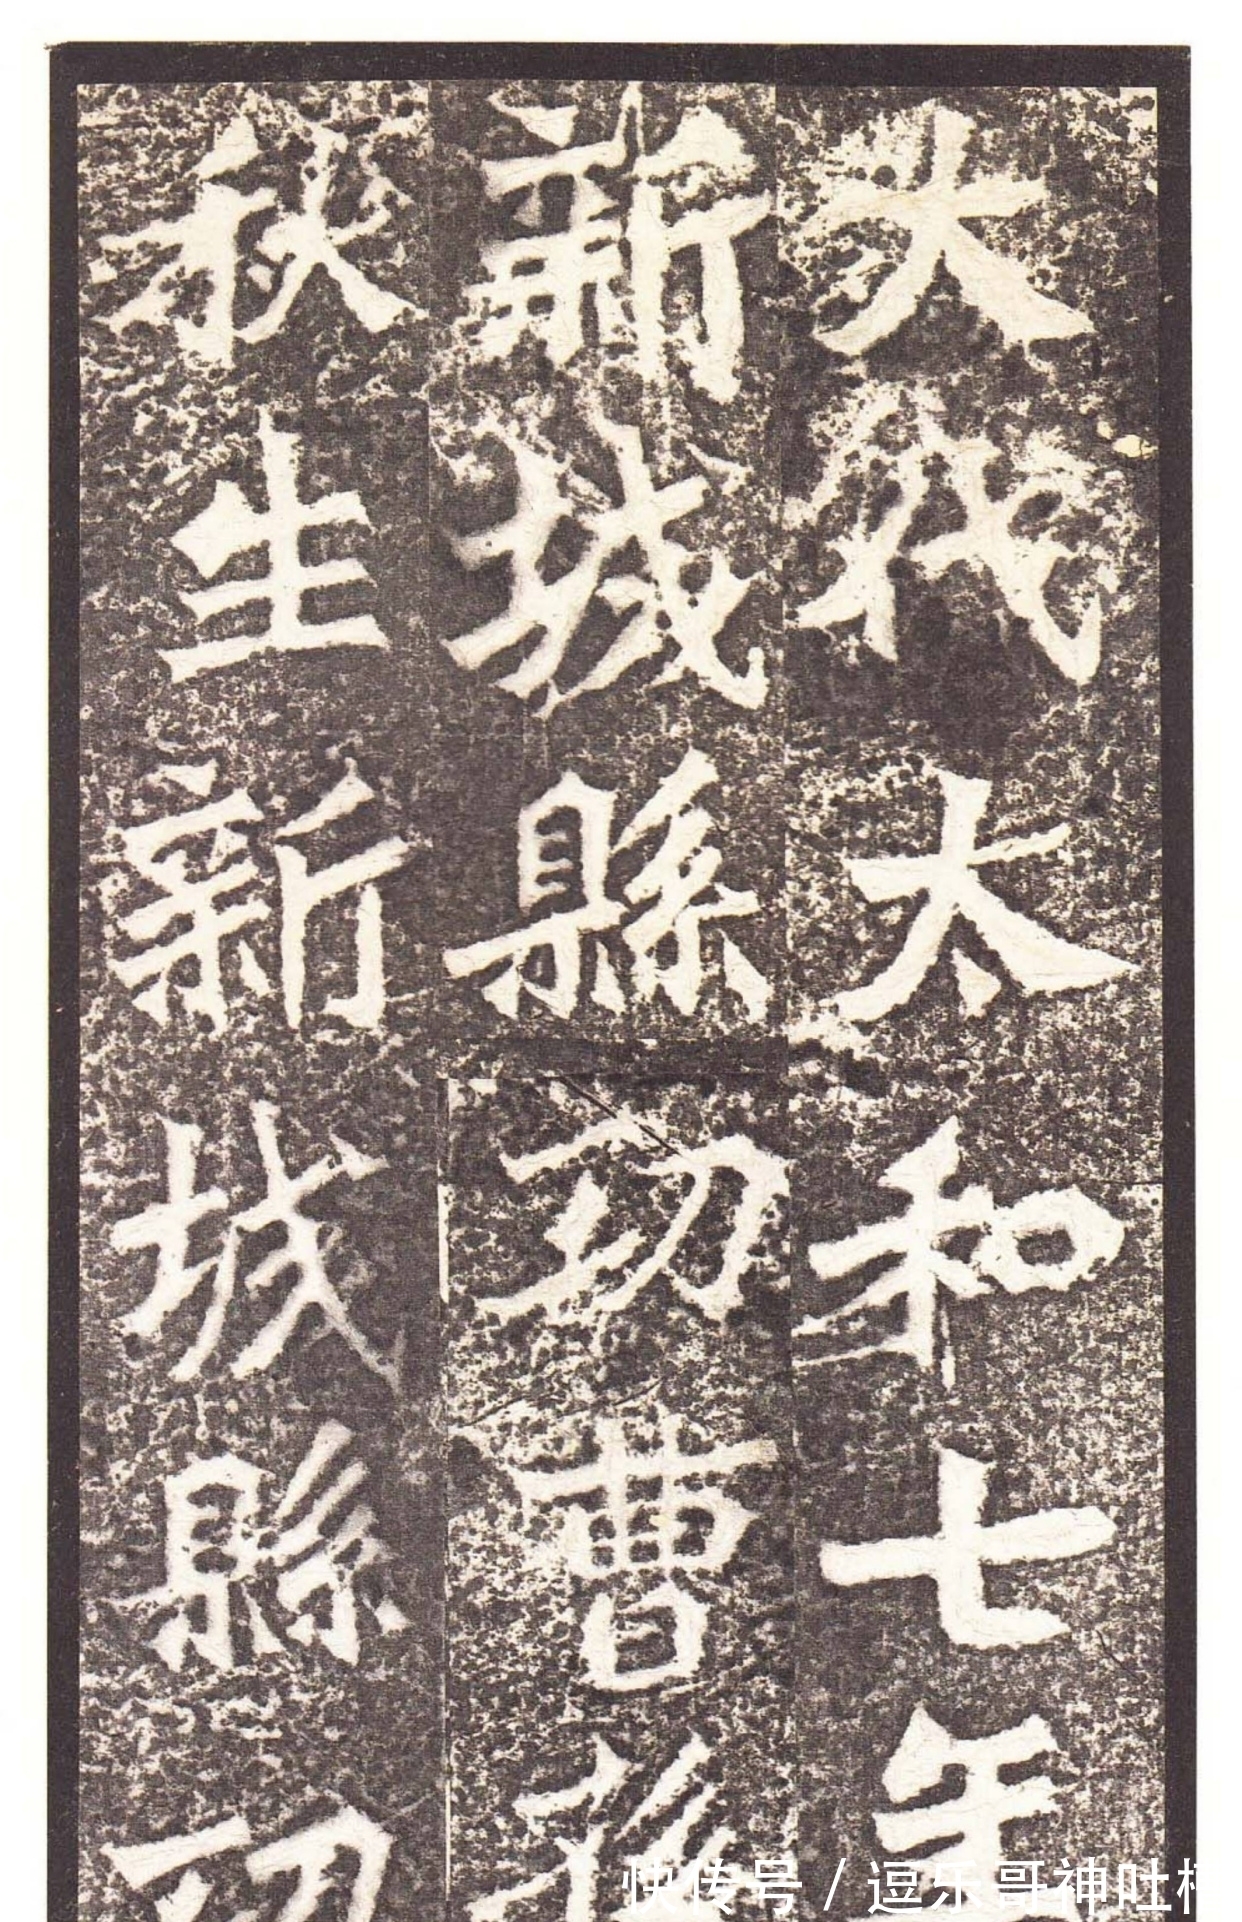 大代太和七年
新城縣功曹孫
秋生新城縣功
快传号 / 逗乐哥神吐